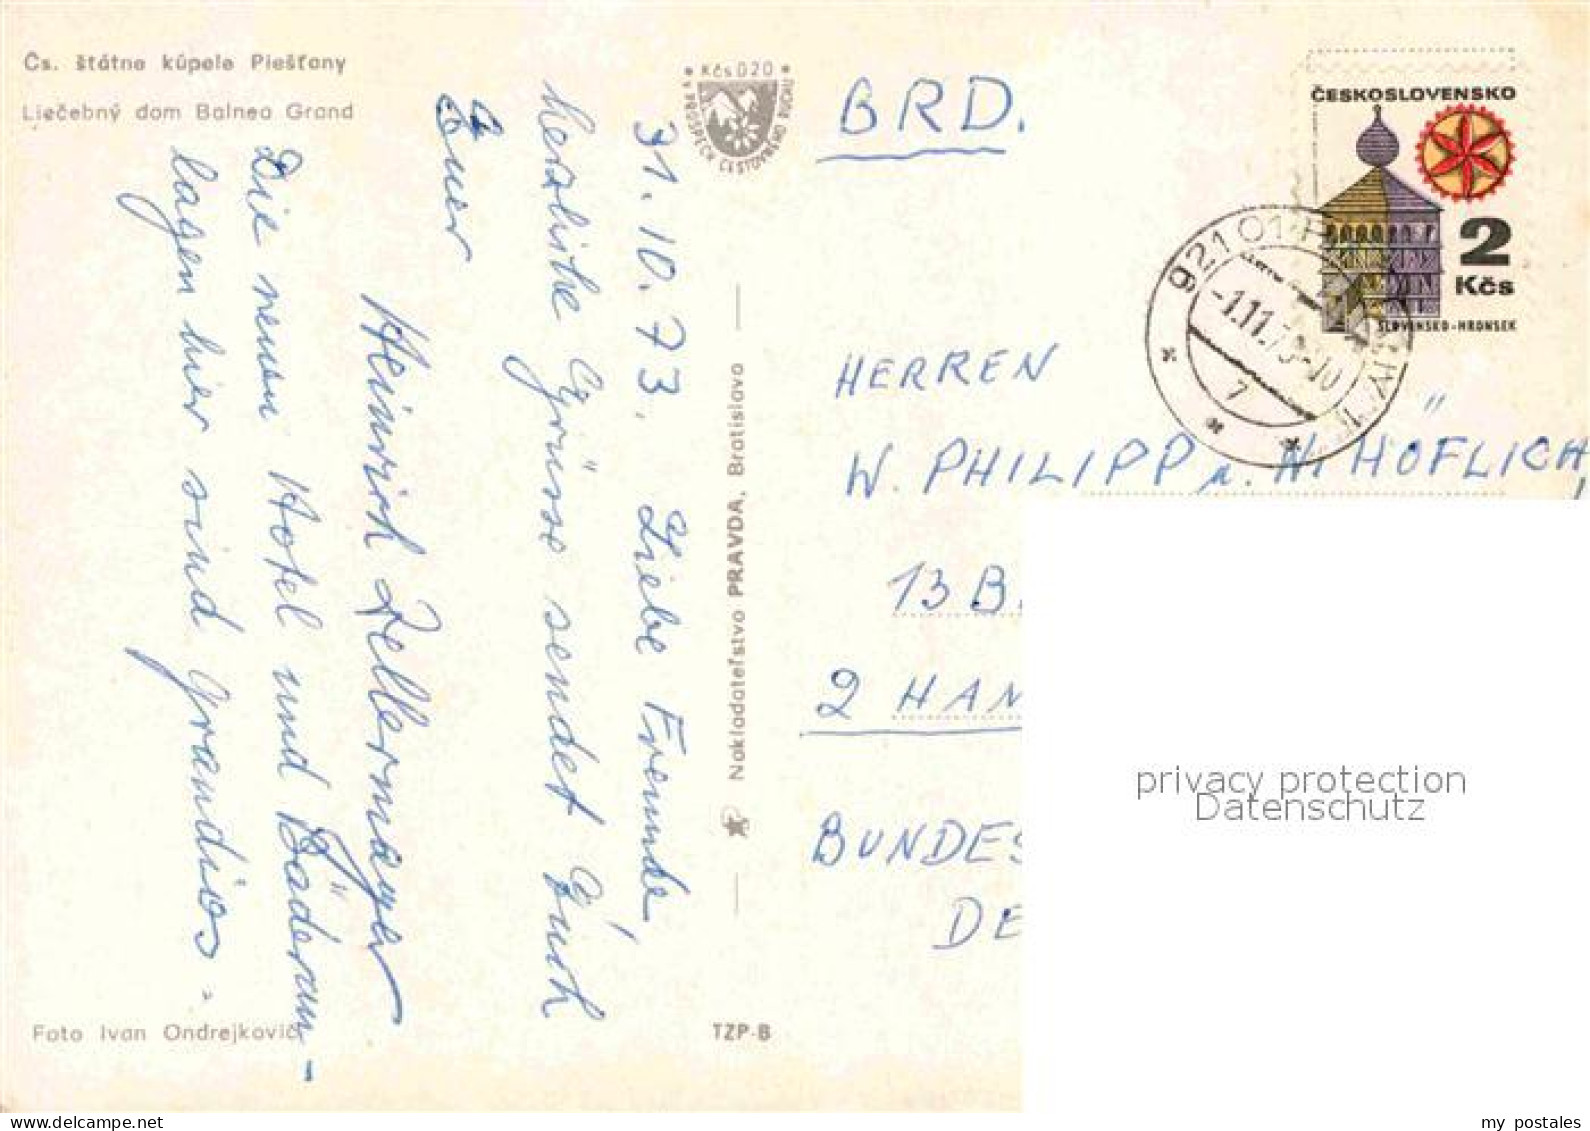 Čs. štátne kúpele Piešťany
Liečebný dom Balnea Grand
31.10.73. Liebe Freunde,
herzliche Grüsse sendet Euch
Euer
Heinrich Zellermayer
Die neuen Hotel und Bäderan-
lagen hier sind grandios.
Foto Ivan Ondrejkovič
Kčs 0,20
V PROSPECH CESTOVNÉHO RUCHU
Nakladateľstvo PRAVDA, Bratislava
TZP-B
BRD.
ČESKOSLOVENSKO
2
Kčs
SLOVENSKO-HRONSEK
921 01
-1.11.73-10
7
HERREN
W. PHILIPP u. M. HÖFLICH,
13 B.
2 HAN
BUNDES
DE
privacy protection
Datenschutz
my_postales